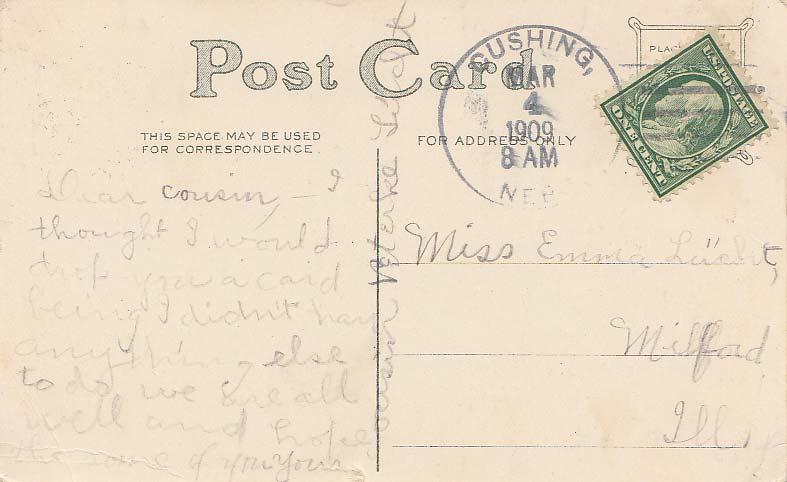 Post Card
THIS SPACE MAY BE USED
FOR CORRESPONDENCE.
FOR ADDRESS ONLY
PLAC
CUSHING,
MAR
4
1909
8 AM
NEB
U.S. POSTAGE
ONE CENT
Dear cousin, - I
thought I would
drop you a card
being I didn't have
anything else
to do. we are all
well and hope
the same of you. Your
cousin
Miss Emma Lücht,
Milford
Ill.